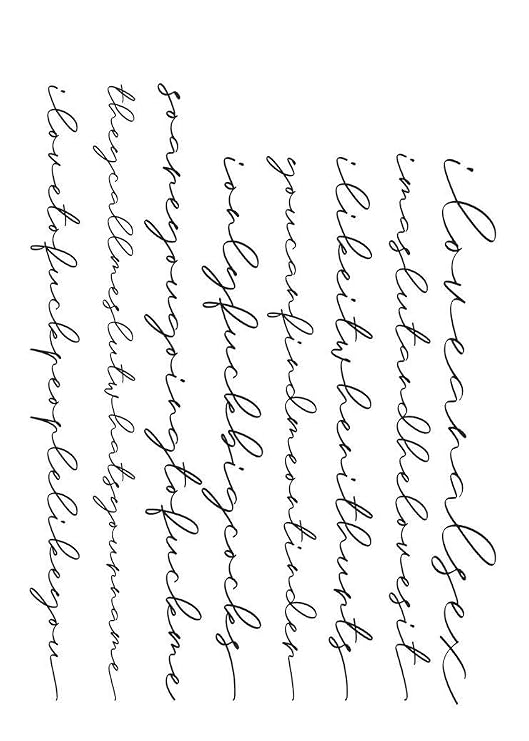 iloveanalsex
imaslutandhelovesit
ilikeitwhenithurts
youcanfindmeontinder
ionlyfuckbigcocks
soareyougoingtofuckme
theycallmeslutwhatsyourname
ilovetofuckpeoplelikeyou